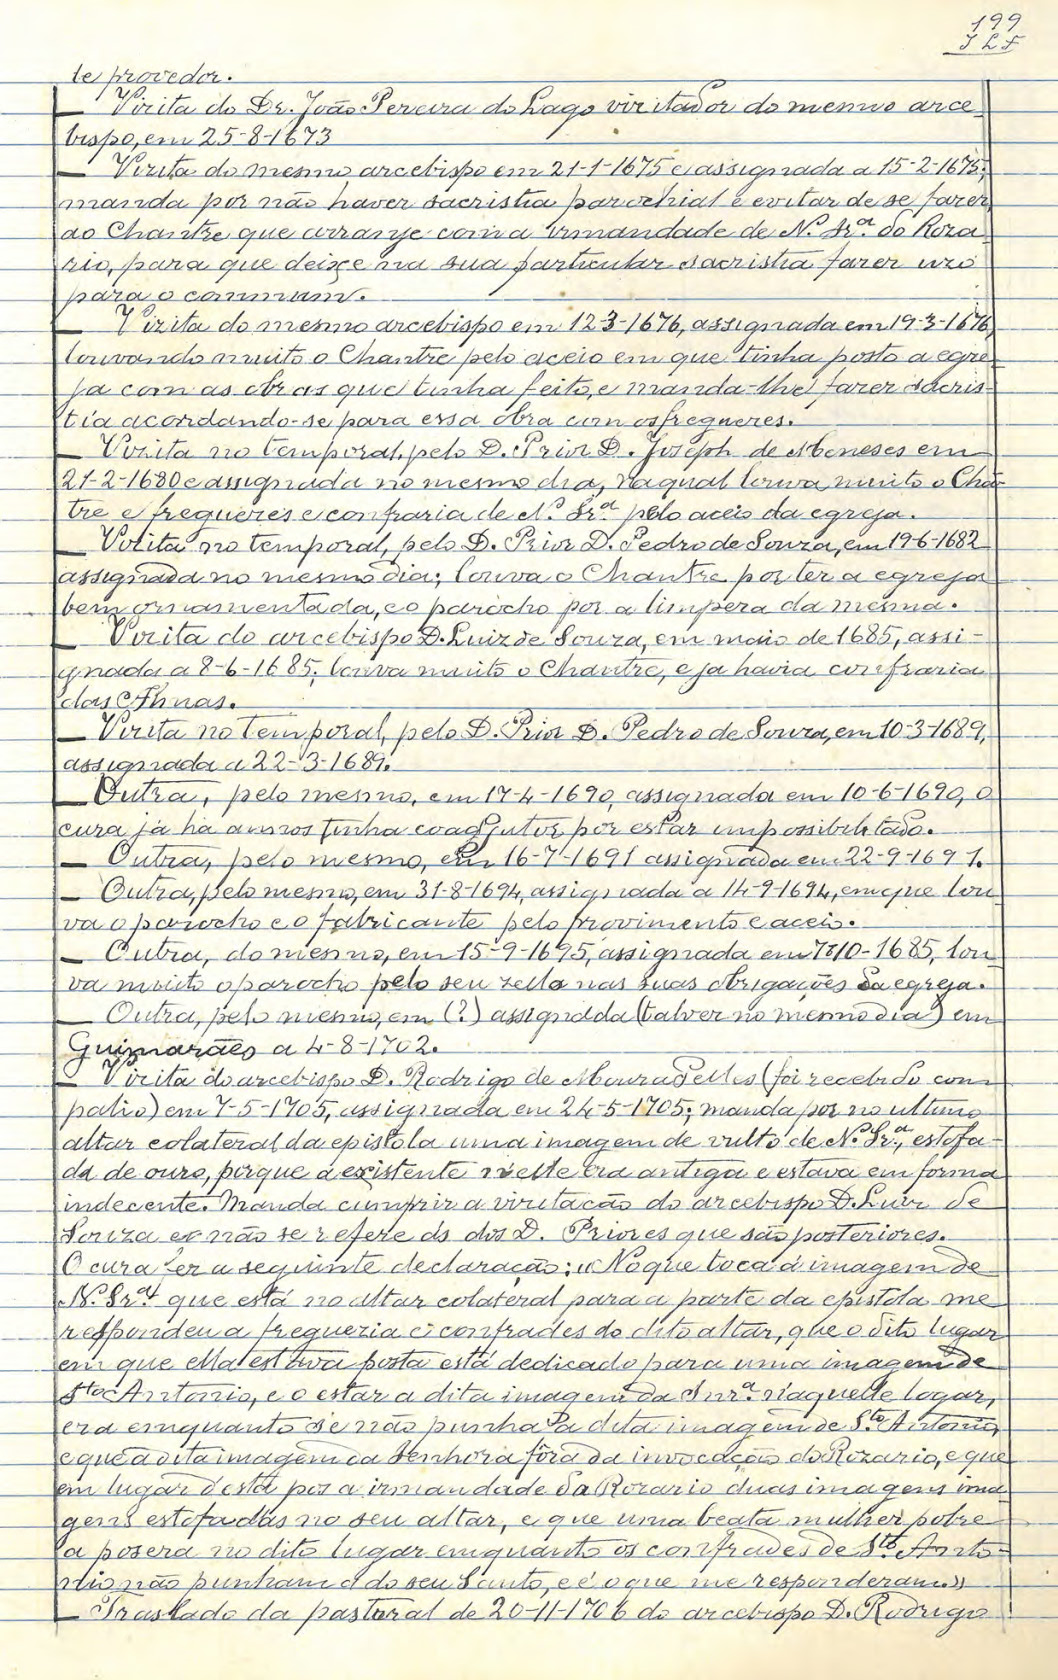 199
J L F
te provedor.
— Vizita do Dr. João Pereira do Lago vizitador do mesmo arce-
bispo, em 25-8-1673
— Vizita do mesmo arcebispo em 21-1-1675 e assignada a 15-2-1675;
manda por não haver sacristia parochial e evitar de se fazer,
ao Chantre que arranje com a irmandade de N. Srª. do Roza-
rio, para que deixe na sua particular sacristia fazer uzo
para o commum.
— Vizita do mesmo arcebispo em 12-3-1676, assignada em 19-3-1676,
louvando muito o Chantre pelo aceio em que tinha posto a egre-
ja com as obras que tinha feito, e manda-lhe fazer sacris-
tia acordando-se para essa obra com os freguezes.
— Vizita no temporal, pelo D. Prior D. Joseph de Meneses em
21-2-1680 e assignada no mesmo dia, na qual louva muito o Chan-
tre e freguezes e confraria de N. Srª. pelo aceio da egreja.
— Vizita no temporal, pelo D. Prior D. Pedro de Souza, em 19-6-1682
assignada no mesmo dia; louva o Chantre por ter a egreja
bem ornamentada, e o parocho por a limpeza da mesma.
— Vizita do arcebispo D. Luiz de Souza, em maio de 1685, assi-
gnada a 8-6-1685; louva muito o Chantre, e ja havia confraria
das Almas.
— Vizita no temporal, pelo D. Prior D. Pedro de Souza, em 10-3-1689,
assignada a 22-3-1689.
— Outra, pelo mesmo, em 17-4-1690, assignada em 10-6-1690, o
cura já ha annos tinha coadjutor por estar impossibilitado.
— Outra, pelo mesmo, em 16-7-1691 assignada em 22-9-1691.
— Outra, pelo mesmo, em 31-8-1694, assignada a 14-9-1694, em que lou-
va o parocho e o fabricante pelo provimento e aceio.
— Outra, do mesmo, em 15-9-1695, assignada em 10-1685, lou-
va muito o parocho pelo seu zello nas suas obrigações da egreja.
— Outra, pelo mesmo, em (?) assignada (talvez no mesmo dia) em
Guimarães a 4-8-1702.
— Vizita do arcebispo D. Rodrigo de Moura Telles (foi recebido com
palio) em 7-5-1705, assignada em 24-5-1705; manda por no ultimo
altar colateral da epistola uma imagem de vulto de N. Srª., estofa-
da de ouro, porque a existente n'elle era antiga e estava em forma
indecente. Manda cumprir a vizitação do arcebispo D. Luiz de
Souza e não se refere ás dos D. Priores que são posteriores.
O cura fez a seguinte declaração: «No que toca á imagem de
N. Srª. que está no altar colateral para a parte da epistola me
respondeu a freguezia e confrades do dito altar, que o dito lugar
em que ella estava posta está dedicado para uma imagem de
Sto Antonio, e o estar a dita imagem da Snrª. n'aquelle logar,
era emquanto se não punha la dita imagem de Sto. Antonio,
e que a dita imagem da Senhora fôra da invocação do Rozario, e que
em lugar d'esta poz a irmandade do Rozario duas imagens ima-
gens estofadas no seu altar, e que uma beata mulher pobre
a pozera no dito lugar emquanto os confrades de Sto. Anto-
nio não punham a do seu Santo, e é o que me responderam.»
— Traslado da pastoral de 20-11-1706 do arcebispo D. Rodrigo